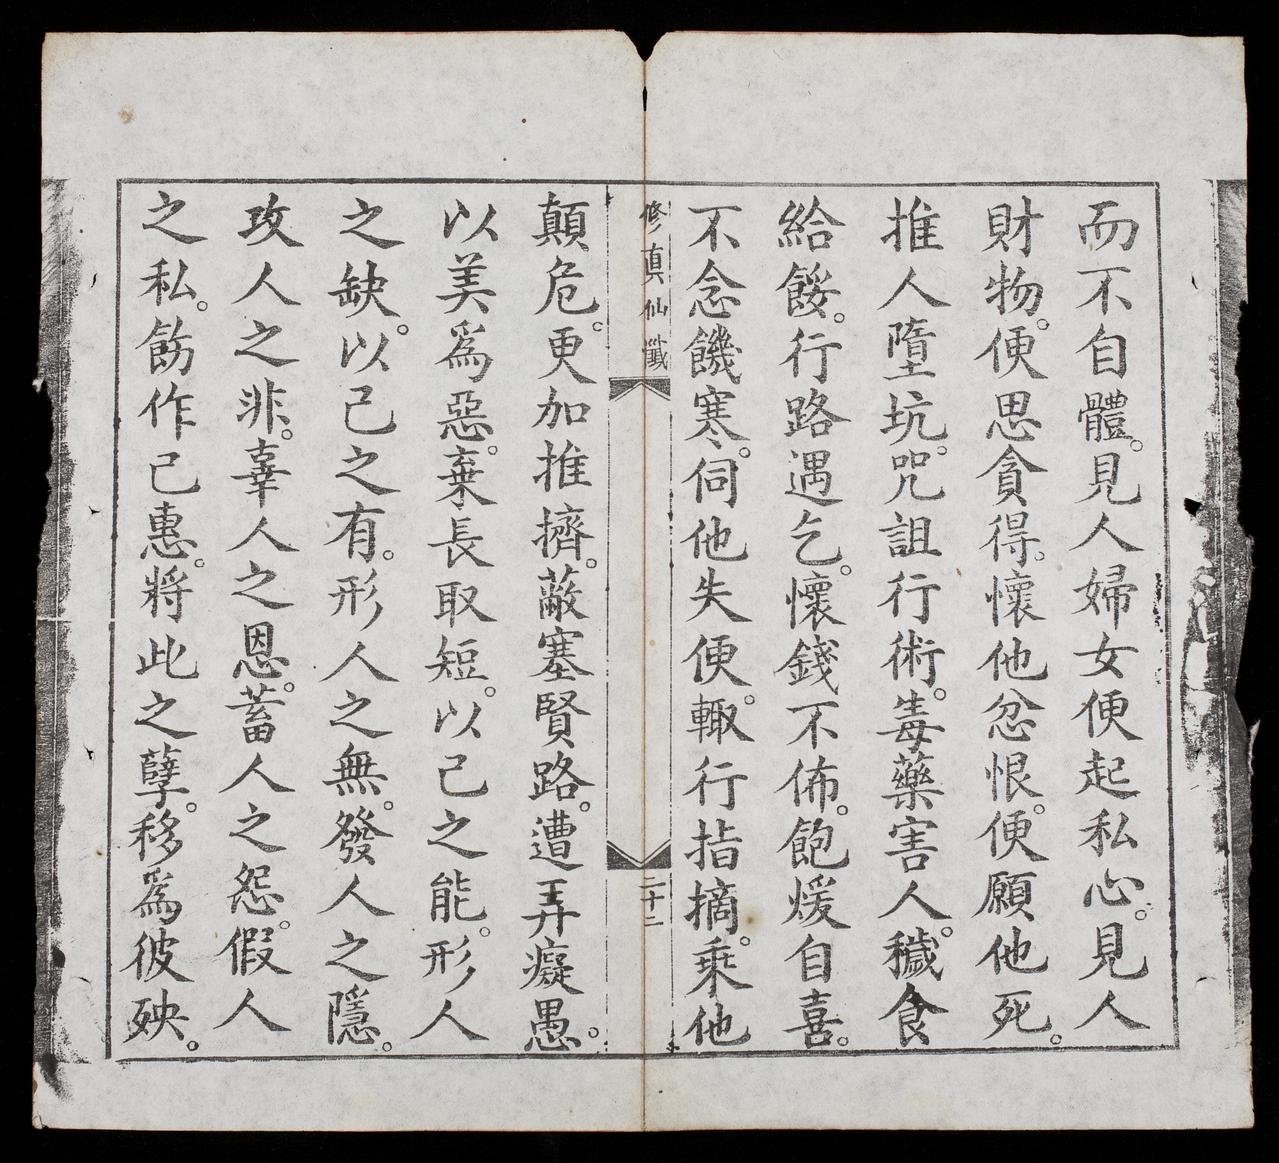 而不自體。見人婦女便起私心。見人
財物。便思貪得。懷他忿恨。便願他死。
推人墮坑。咒詛行術。毒藥害人。穢食
給餧。行路遇乞。懷錢不佈。飽煖自喜。
不念饑寒。伺他失便。輙行指摘。乘他
修真仙懺
二十二
顛危。更加推擠。蔽塞賢路。遭弄癡愚。
以美爲惡。棄長取短。以己之能。形人
之缺。以己之有。形人之無。發人之隱。
攻人之非。辜人之恩。蓄人之怨。假人
之私。飭作己惠。將此之孽。移爲彼殃。